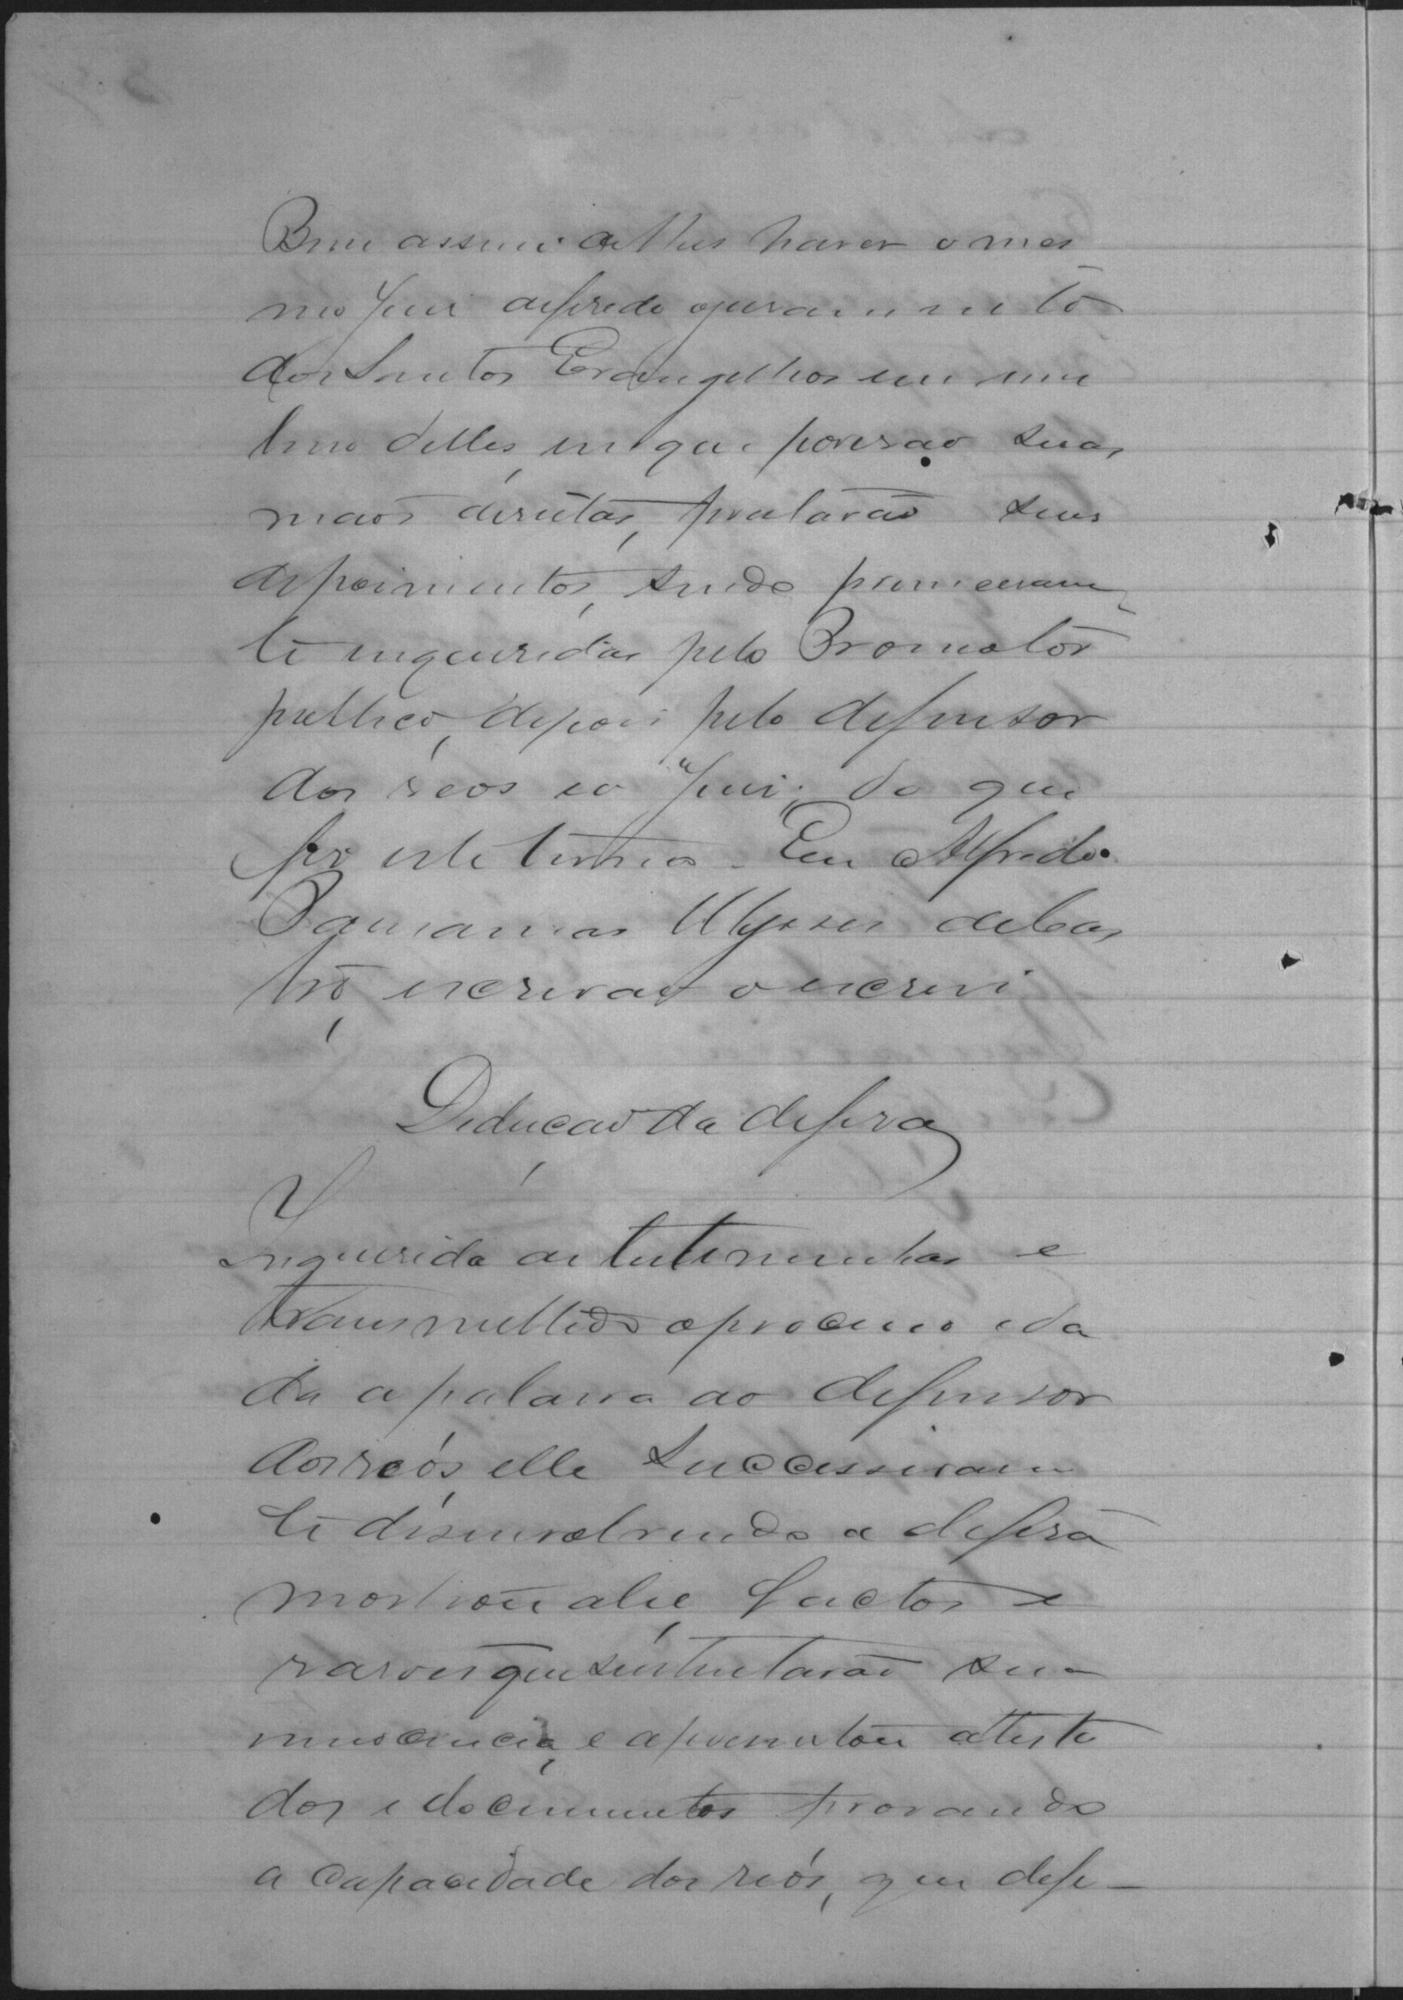 Bem assim de lhes haver o mes
mo Juiz deferido o juramento
dos Santos Evangelhos em um
livro delles, em que poserão suas
mãos direitas, prestarão seus
depoimentos, sendo primeiramen
te inqueridas pelo Promotor
publico, depois pelo defensor
dos réos e o Juiz; do que
fiz este termo. Eu Alfredo
Damamas Ulysses de Cas
tro, escrivão o escrevi

Deducção da defesa

Inquerida as testemunhas e
transmettido o processo e da
da a palavra ao defensor
dos reós, elle successivamen
te disenvolvendo a defesa
mostrou a lei, factos e
rasões que sustentarão sua
innocencia, e apresentou attesta
dos e documentos provando
a capacidade dos reós, que defe-